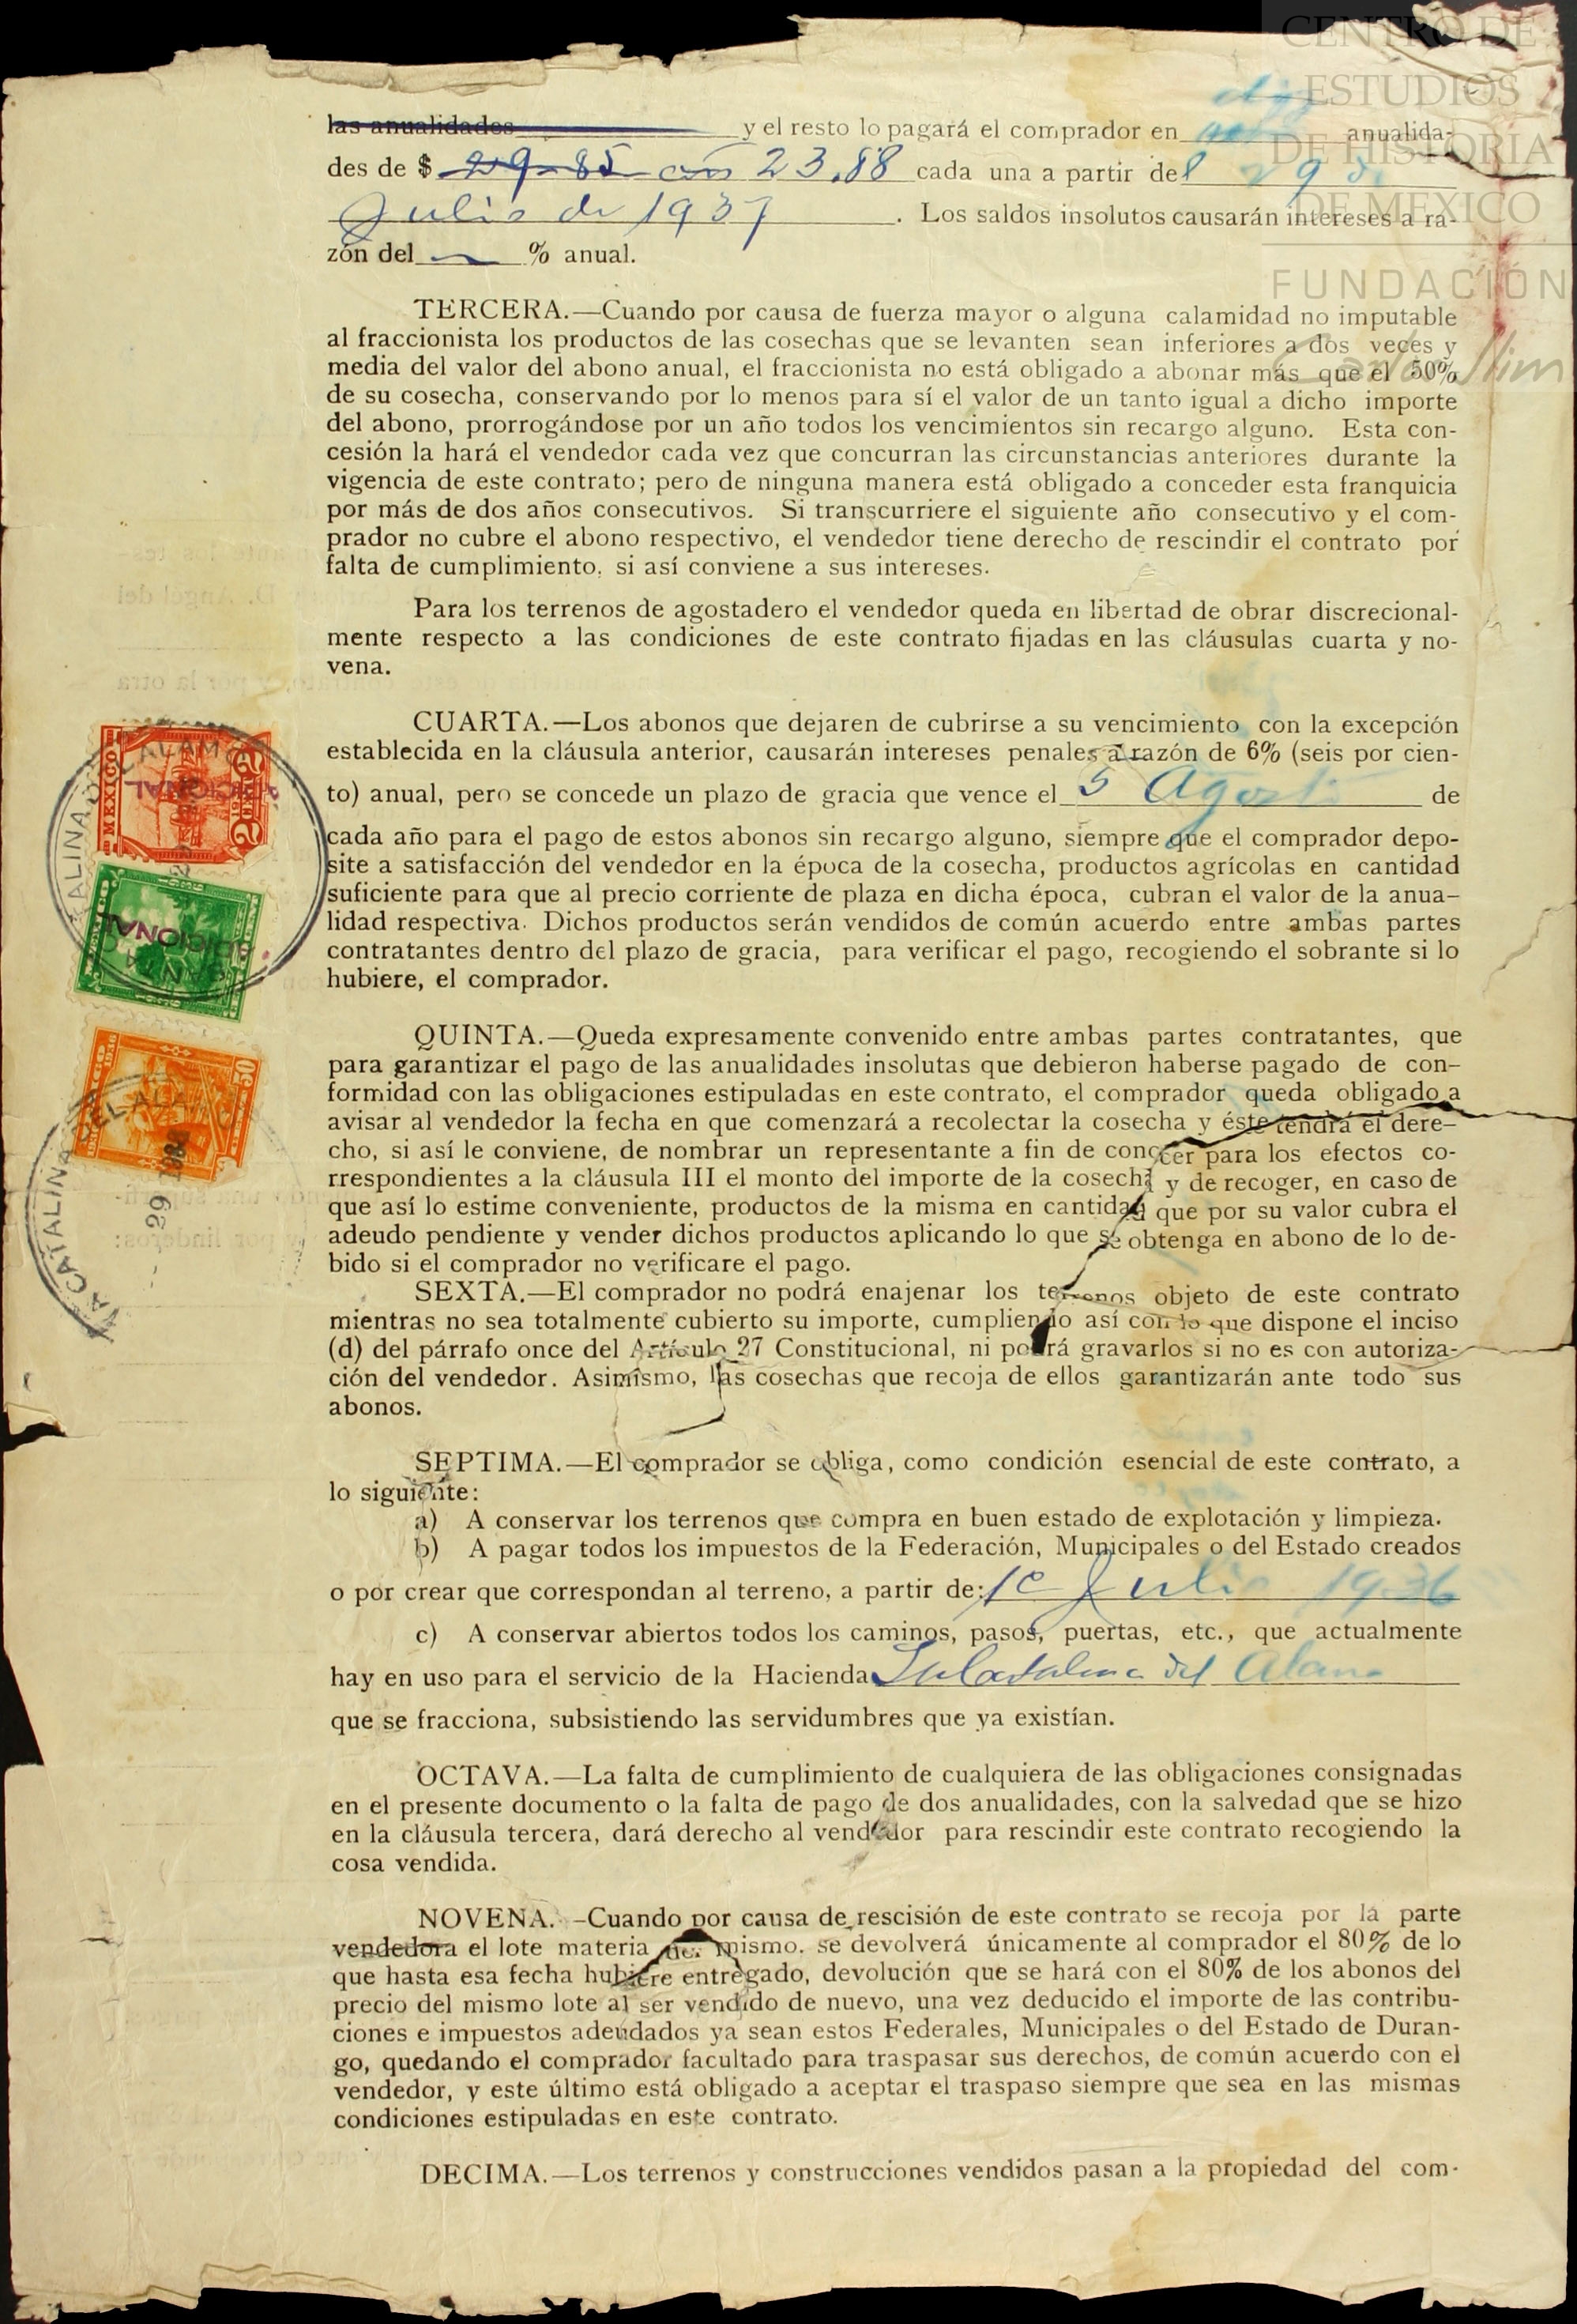 CENTRO DE
ESTUDIOS
DE HISTORIA
DE MEXICO
FUNDACIÓN
Carlos Slim
las anualidades y el resto lo pagará el comprador en anualida-
des de $ 29.85 23.88 cada una a partir del 29 de
Julio de 1937. Los saldos insolutos causarán intereses a ra-
zón del % anual.
TERCERA.—Cuando por causa de fuerza mayor o alguna calamidad no imputable
al fraccionista los productos de las cosechas que se levanten sean inferiores a dos veces y
media del valor del abono anual, el fraccionista no está obligado a abonar más que el 50%
de su cosecha, conservando por lo menos para sí el valor de un tanto igual a dicho importe
del abono, prorrogándose por un año todos los vencimientos sin recargo alguno. Esta con-
cesión la hará el vendedor cada vez que concurran las circunstancias anteriores durante la
vigencia de este contrato; pero de ninguna manera está obligado a conceder esta franquicia
por más de dos años consecutivos. Si transcurriere el siguiente año consecutivo y el com-
prador no cubre el abono respectivo, el vendedor tiene derecho de rescindir el contrato por
falta de cumplimiento, si así conviene a sus intereses.
Para los terrenos de agostadero el vendedor queda en libertad de obrar discrecional-
mente respecto a las condiciones de este contrato fijadas en las cláusulas cuarta y no-
vena.
CUARTA.—Los abonos que dejaren de cubrirse a su vencimiento con la excepción
establecida en la cláusula anterior, causarán intereses penales a razón de 6% (seis por cien-
to) anual, pero se concede un plazo de gracia que vence el 5 Agosto de
cada año para el pago de estos abonos sin recargo alguno, siempre que el comprador depo-
site a satisfacción del vendedor en la época de la cosecha, productos agrícolas en cantidad
suficiente para que al precio corriente de plaza en dicha época, cubran el valor de la anua-
lidad respectiva. Dichos productos serán vendidos de común acuerdo entre ambas partes
contratantes dentro del plazo de gracia, para verificar el pago, recogiendo el sobrante si lo
hubiere, el comprador.
QUINTA.—Queda expresamente convenido entre ambas partes contratantes, que
para garantizar el pago de las anualidades insolutas que debieron haberse pagado de con-
formidad con las obligaciones estipuladas en este contrato, el comprador queda obligado a
avisar al vendedor la fecha en que comenzará a recolectar la cosecha y éste tendrá el dere-
cho, si así le conviene, de nombrar un representante a fin de conocer para los efectos co-
rrespondientes a la cláusula III el monto del importe de la cosecha y de recoger, en caso de
que así lo estime conveniente, productos de la misma en cantidad que por su valor cubra el
adeudo pendiente y vender dichos productos aplicando lo que se obtenga en abono de lo de-
bido si el comprador no verificare el pago.
SEXTA.—El comprador no podrá enajenar los terrenos objeto de este contrato
mientras no sea totalmente cubierto su importe, cumpliendo así con lo que dispone el inciso
(d) del párrafo once del Artículo 27 Constitucional, ni podrá gravarlos si no es con autoriza-
ción del vendedor. Asimismo, las cosechas que recoja de ellos garantizarán ante todo sus
abonos.
SEPTIMA.—El comprador se obliga, como condición esencial de este contrato, a
lo siguiente:
a) A conservar los terrenos que compra en buen estado de explotación y limpieza.
b) A pagar todos los impuestos de la Federación, Municipales o del Estado creados
o por crear que correspondan al terreno, a partir de: 1º Julio 1936
c) A conservar abiertos todos los caminos, pasos, puertas, etc., que actualmente
hay en uso para el servicio de la Hacienda Sta Catalina del Alamo
que se fracciona, subsistiendo las servidumbres que ya existían.
OCTAVA.—La falta de cumplimiento de cualquiera de las obligaciones consignadas
en el presente documento o la falta de pago de dos anualidades, con la salvedad que se hizo
en la cláusula tercera, dará derecho al vendedor para rescindir este contrato recogiendo la
cosa vendida.
NOVENA.—Cuando por causa de rescisión de este contrato se recoja por la parte
vendedora el lote materia del mismo, se devolverá únicamente al comprador el 80% de lo
que hasta esa fecha hubiere entregado, devolución que se hará con el 80% de los abonos del
precio del mismo lote al ser vendido de nuevo, una vez deducido el importe de las contribu-
ciones e impuestos adeudados ya sean estos Federales, Municipales o del Estado de Duran-
go, quedando el comprador facultado para traspasar sus derechos, de común acuerdo con el
vendedor, y este último está obligado a aceptar el traspaso siempre que sea en las mismas
condiciones estipuladas en este contrato.
DECIMA.—Los terrenos y construcciones vendidos pasan a la propiedad del com-
MEXICO
ADICIONAL
1936
ADICIONAL
1936
50
CATALINA DEL ALAMO
29